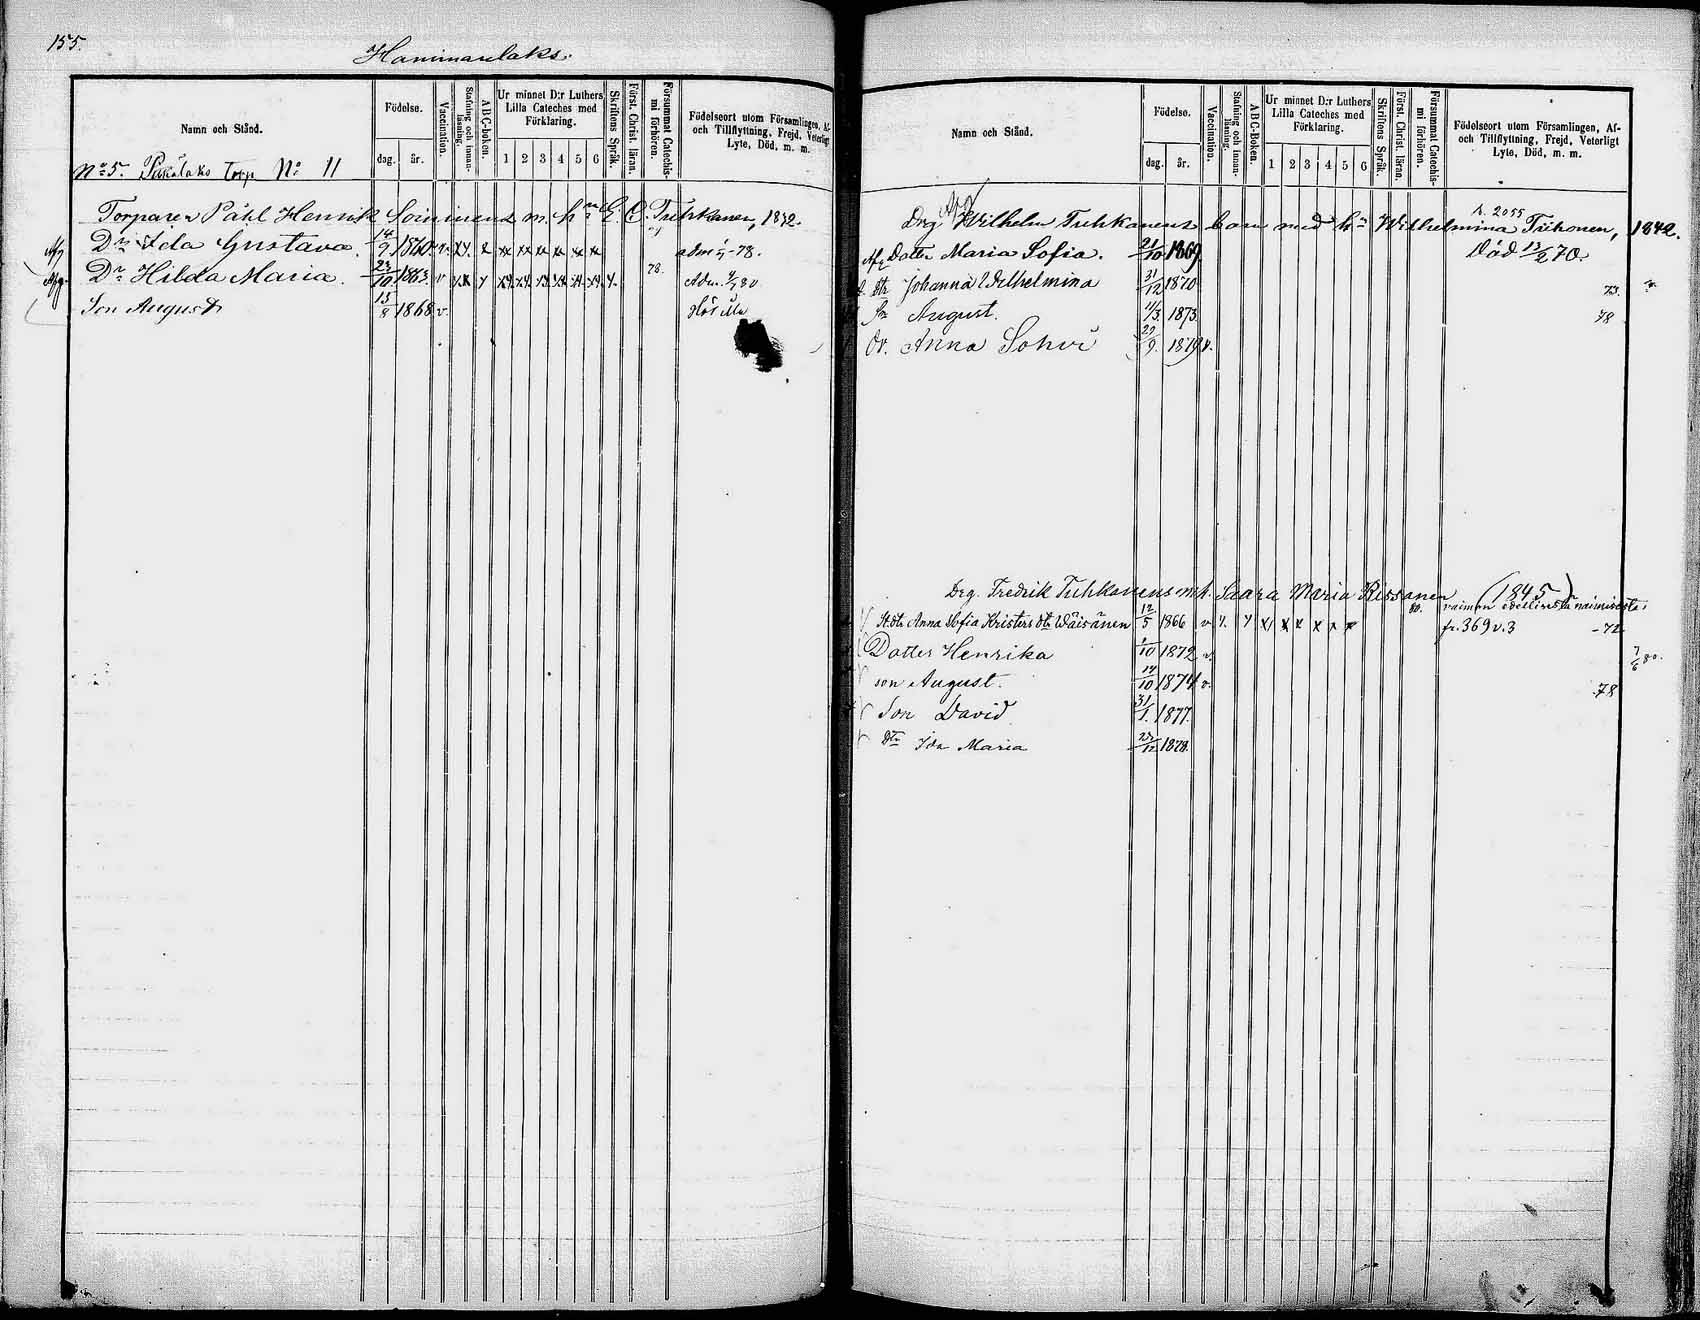 155.
Haminanlaks.
Namn och Stånd.
Födelse.
dag. år.
Vaccination.
Stafning och innanläsning.
ABC-boken.
Ur minnet D:r Luthers Lilla Cateches med Förklaring.
1 2 3 4 5 6
Skriftens Språk.
Först. Christ. läran.
Försummat Catechismi förhören.
Födelseort utom Församlingen, Af- och Tillflyttning, Frejd, Veterligt Lyte, Död, m. m.
No 5. Torp No 11
Torparen Påhl Henrik Soininens m. hu E. C. Tuhkanen, 1832.
Dr Ida Gustava. 14/9 1860. v. adm -78.
Dr Hilda Maria. 23/10 1863. v 78. Adm. 80
Son August 13/8 1868 v.
Namn och Stånd.
Födelse.
dag. år.
Vaccination.
Stafning och innanläsning.
ABC-Boken.
Ur minnet D:r Luthers Lilla Cateches med Förklaring.
1 2 3 4 5 6
Skriftens Språk.
Först. Christ. läran.
Försummat Catechismi förhören.
Födelseort utom Församlingen, Af- och Tillflyttning, Frejd, Veterligt Lyte, Död, m. m.
2055
Drg Wilhelm Tuhkanens barn med hu Wilhelmina Tiihonen, 1842.
Dotter Maria Sofia. 21/10 1869. Död 13/2 70.
Dtr Johanna Wilhelmina 31/12 1870 73.
Sn August. 4/3. 1873. 78
Dr. Anna Sohvi 29/9. 1879 v.
Drg. Fredrik Tuhkanens m. h. Saara Maria Rissanen (1845)
St. dtr Anna Sofia Kristers dtr Wäisänen 12/5 1866 v 80. vaimon edellisestä naimisesta
fr. 369 v. 3 -72
Dotter Henrika 1/10 1872 v. 7/6 80.
son August. 14/10 1874 v. 78
Son David 31/1. 1877.
dtr Ida Maria 23/12 1878.